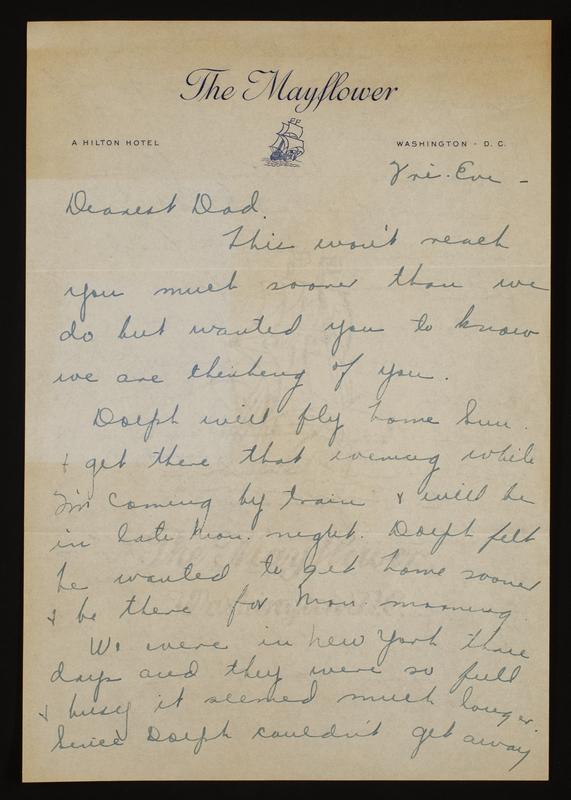 The Mayflower
A HILTON HOTEL
WASHINGTON - D. C.
Fri. Eve -
Dearest Dad.
This won't reach
you much sooner than we
do but wanted you to know
we are thinking of you.
Dolph will fly home Sun.
& get there that evening while
I'm coming by train & will be
in late Mon. night. Dolph felt
he wanted to get home sooner
& be there for Mon morning.
We were in New York three
days and they were so full
& busy it seemed much longer.
Since Dolph couldn't get away